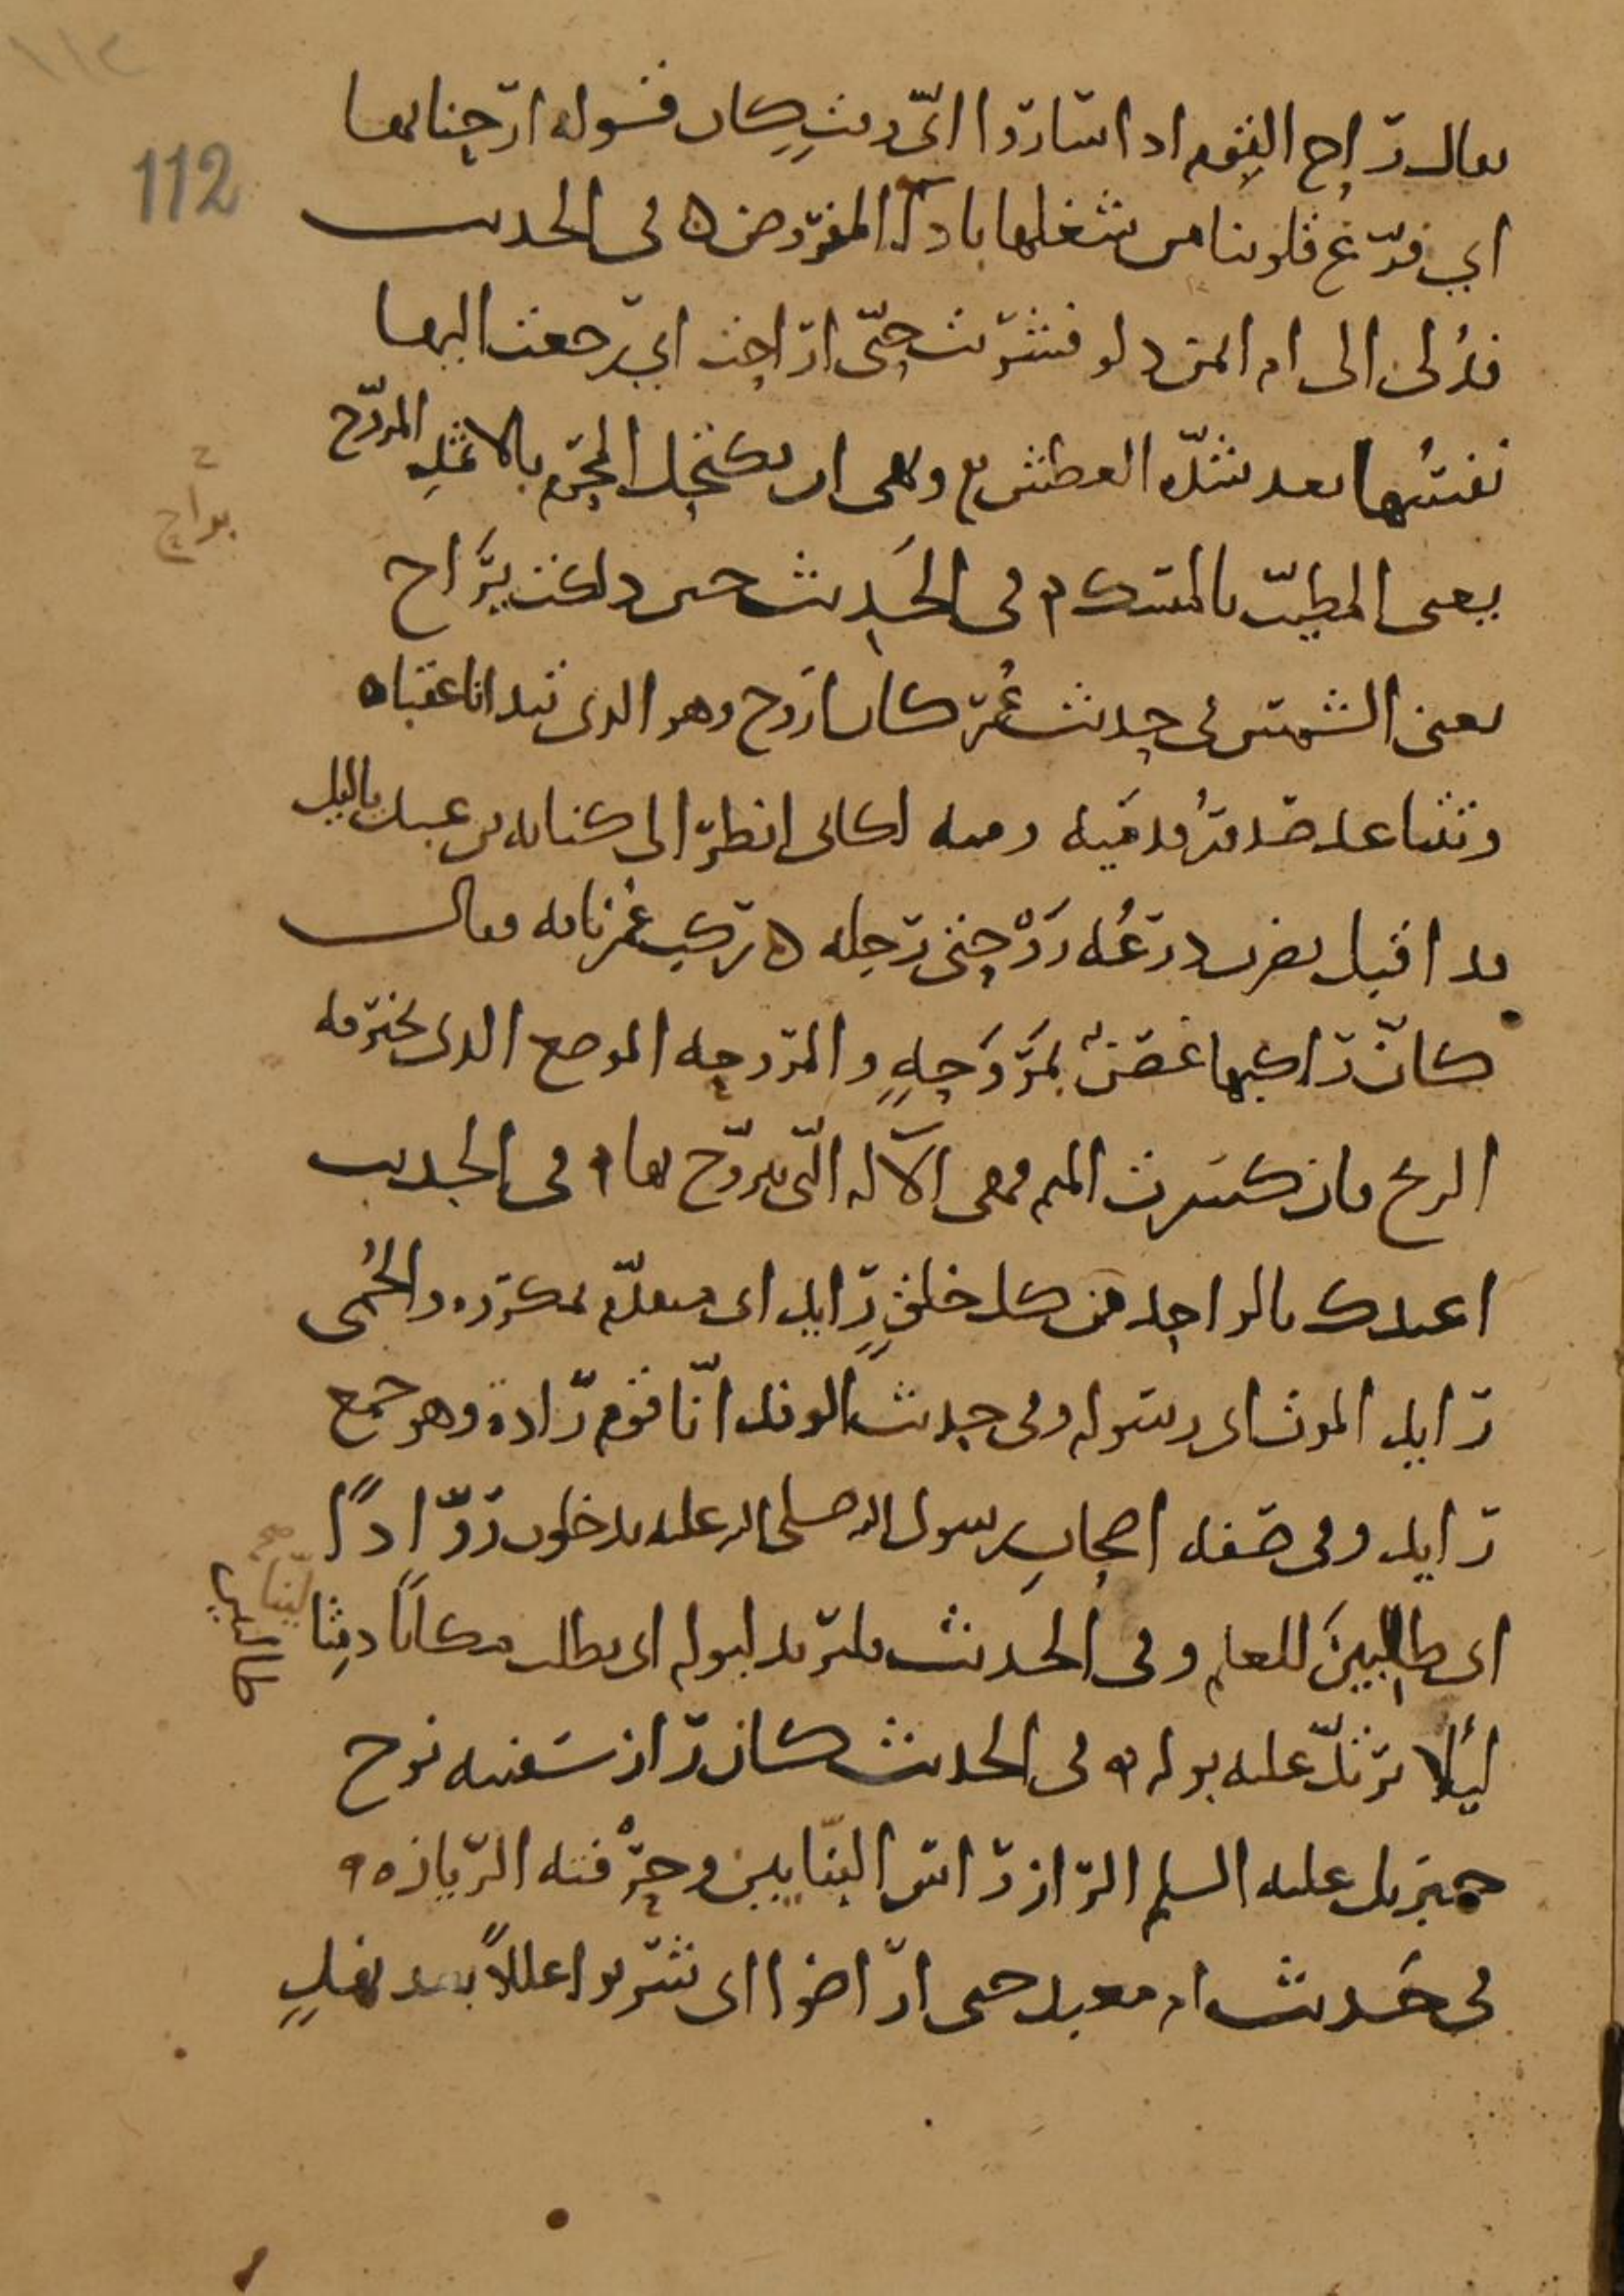 ١١٢
112
يقال راح القوم اذا ساروا اي وقت كان فقوله ارحنا بها
اي فرّغ قلوبنا من شغلها باداء المفروض ه في الحديث
فدُلّي الى ام ايمن دلو فشربت حتى اراحت اي رجعت اليها
نفسُها بعد شدّة العطش ونهى ان يكتحل المحرم بالاثمدِ المروّح
يعني المطيّب بالمسك ه في الحَديث حين دلكت بَراح
ح
براح
يعنى الشمس في حديث عُمر كان اروح وهو الذي تتدانا عقباه
وتتباعد صدورُ قدميه ومنه لكاني انظر الى كنانة بن عبد ياليل
قد اقبل يضرب درعُه رَوْحتي رجله ه ركب عمر ناقة فقال
كانّ راكبها غصنٌ بمَرْوَحةٍ والمروحه الموضع الذي تخترقه
الريح فان كسَرت الميم فهي الآلة التي يتروّح بها ه في الحديث
اعيذك بالواحد من كل خلقٍ رايد اي متقدّم بمكروه والحُمّى
رايد الموت اي رسوله وفي حديث الوفد انّا قوم رادة وهو جمع
رايد وفي صفة اصحابِ رسول الله صلى الله عليه يدخلون رُوّادًا
اي طالبينَ للعلم وفي الحديث فليرتد لبوله اي يطلب مكانًا دمِثا
ليّنا صح
طالبين
ليَلا يرتدّ عليه بوله ه في الحديث كان راز سَفينه نوح
جبريل عليه السلم الراز راس البنّايين وحِرْفته الريازه ه
في حَديث ام معبد حتى اراضوا اي شربوا عللاً بعد نهلٍ